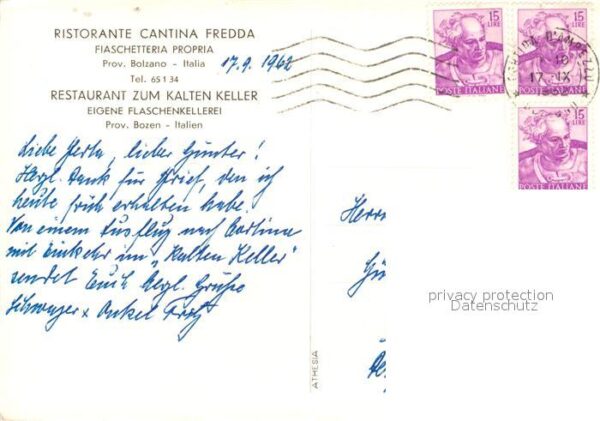 RISTORANTE CANTINA FREDDA
FIASCHETTERIA PROPRIA
Prov. Bolzano - Italia
17.9.1962
Tel. 65134
RESTAURANT ZUM KALTEN KELLER
EIGENE FLASCHENKELLEREI
Prov. Bozen - Italien
Liebe Herta, lieber Günter!
Herzl. Dank für Brief, den ich
heute früh erhalten habe.
Von einem Ausflug nach Cortina
mit Einkehr im "Kalten Keller"
sendet Euch herzl. Grüße
Schwager x Onkel Fritz
ATHESIA
15 LIRE
POSTE ITALIANE
15 LIRE
POSTE ITALIANE
15 LIRE
POSTE ITALIANE
CORTINA D'AMPEZZO
17 IX
Herrn
Gü
privacy protection
Datenschutz